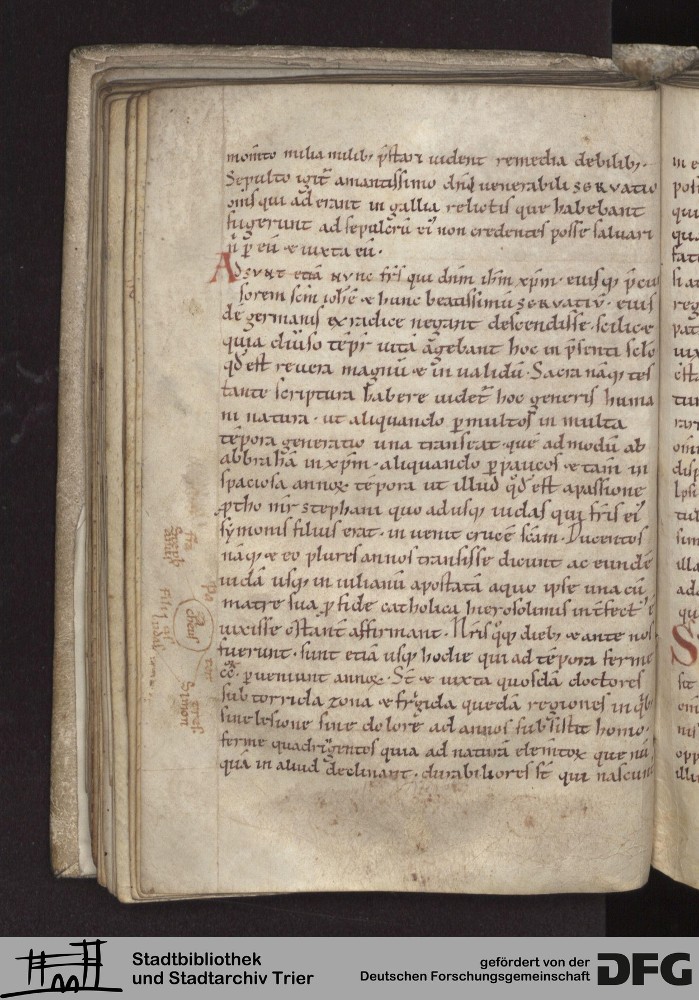 monito milia milib; p̄stari uident remedia debilib;.
Sepulto igit᷑ amantissimo dn̄i uenerabili SERVATIO
om̄s qui ad erant in gallia relictis que habebant
fugerunt ad sepulcrū ei᷒ non credentes posse saluari
n̄ ꝑ eū & iuxta eū.
ADSVNT etiā NVNC fr̄s qui dn̄m ih̄m xp̄m. eiusq; p̄cur
sorem sc̄m ioh̄e & hunc beatissimū SERVATIV̄. eius
dē germanis ex radice negant descendisse. scilic&
quia diuiso tēpr̄ uitā agebant hoc in p̄senti sclo
qd̄ est reuera magnū & in ualidū. Sacra naq; tes
tante scriptura habere uidet᷑ hoc generis huma
ni natura. ut aliquando ꝑ multos in multa
tēpora generatio una transeat. quē ad modū ab
abbrahā in xp̄m. aliquando ꝑ paucos & tam̄ in
spaciosa annoꝝ. tēpora ut illud qd̄ est a passione
ꝓtho mr̄ stephani quo adusq; iudas qui fr̄is ei᷒
symonis filius erat. in uenit crucē sc̄am. Ducentos
nāq; & eo plures annos transisse dicunt ac eundē
iudā usq; in iulianū apostatā a quo ipse una cū
matre sua ꝓ fide catholica hierosolimis int̄fect᷒ ē
uixisse ostant̄ affirmant. Nr̄is qq; dieb; & ante nos
fuerunt. sunt etiā usq; hodie qui ad tēpora ferme
cc. ꝑueniunt annoꝝ. St̄ & iuxta quosdā doctores
sub torrida zona & frigida quedā regiones in qib;
sine lesione sine dolore ad annos subsistit homo.
ferme quadringentos quia ad naturā elem̄toꝝ que nū
quā in aliud declinant. durabiliores st̄ qui nascunt
Stadtbibliothek
und Stadtarchiv Trier
gefördert von der
Deutschen Forschungsgemeinschaft
DFG